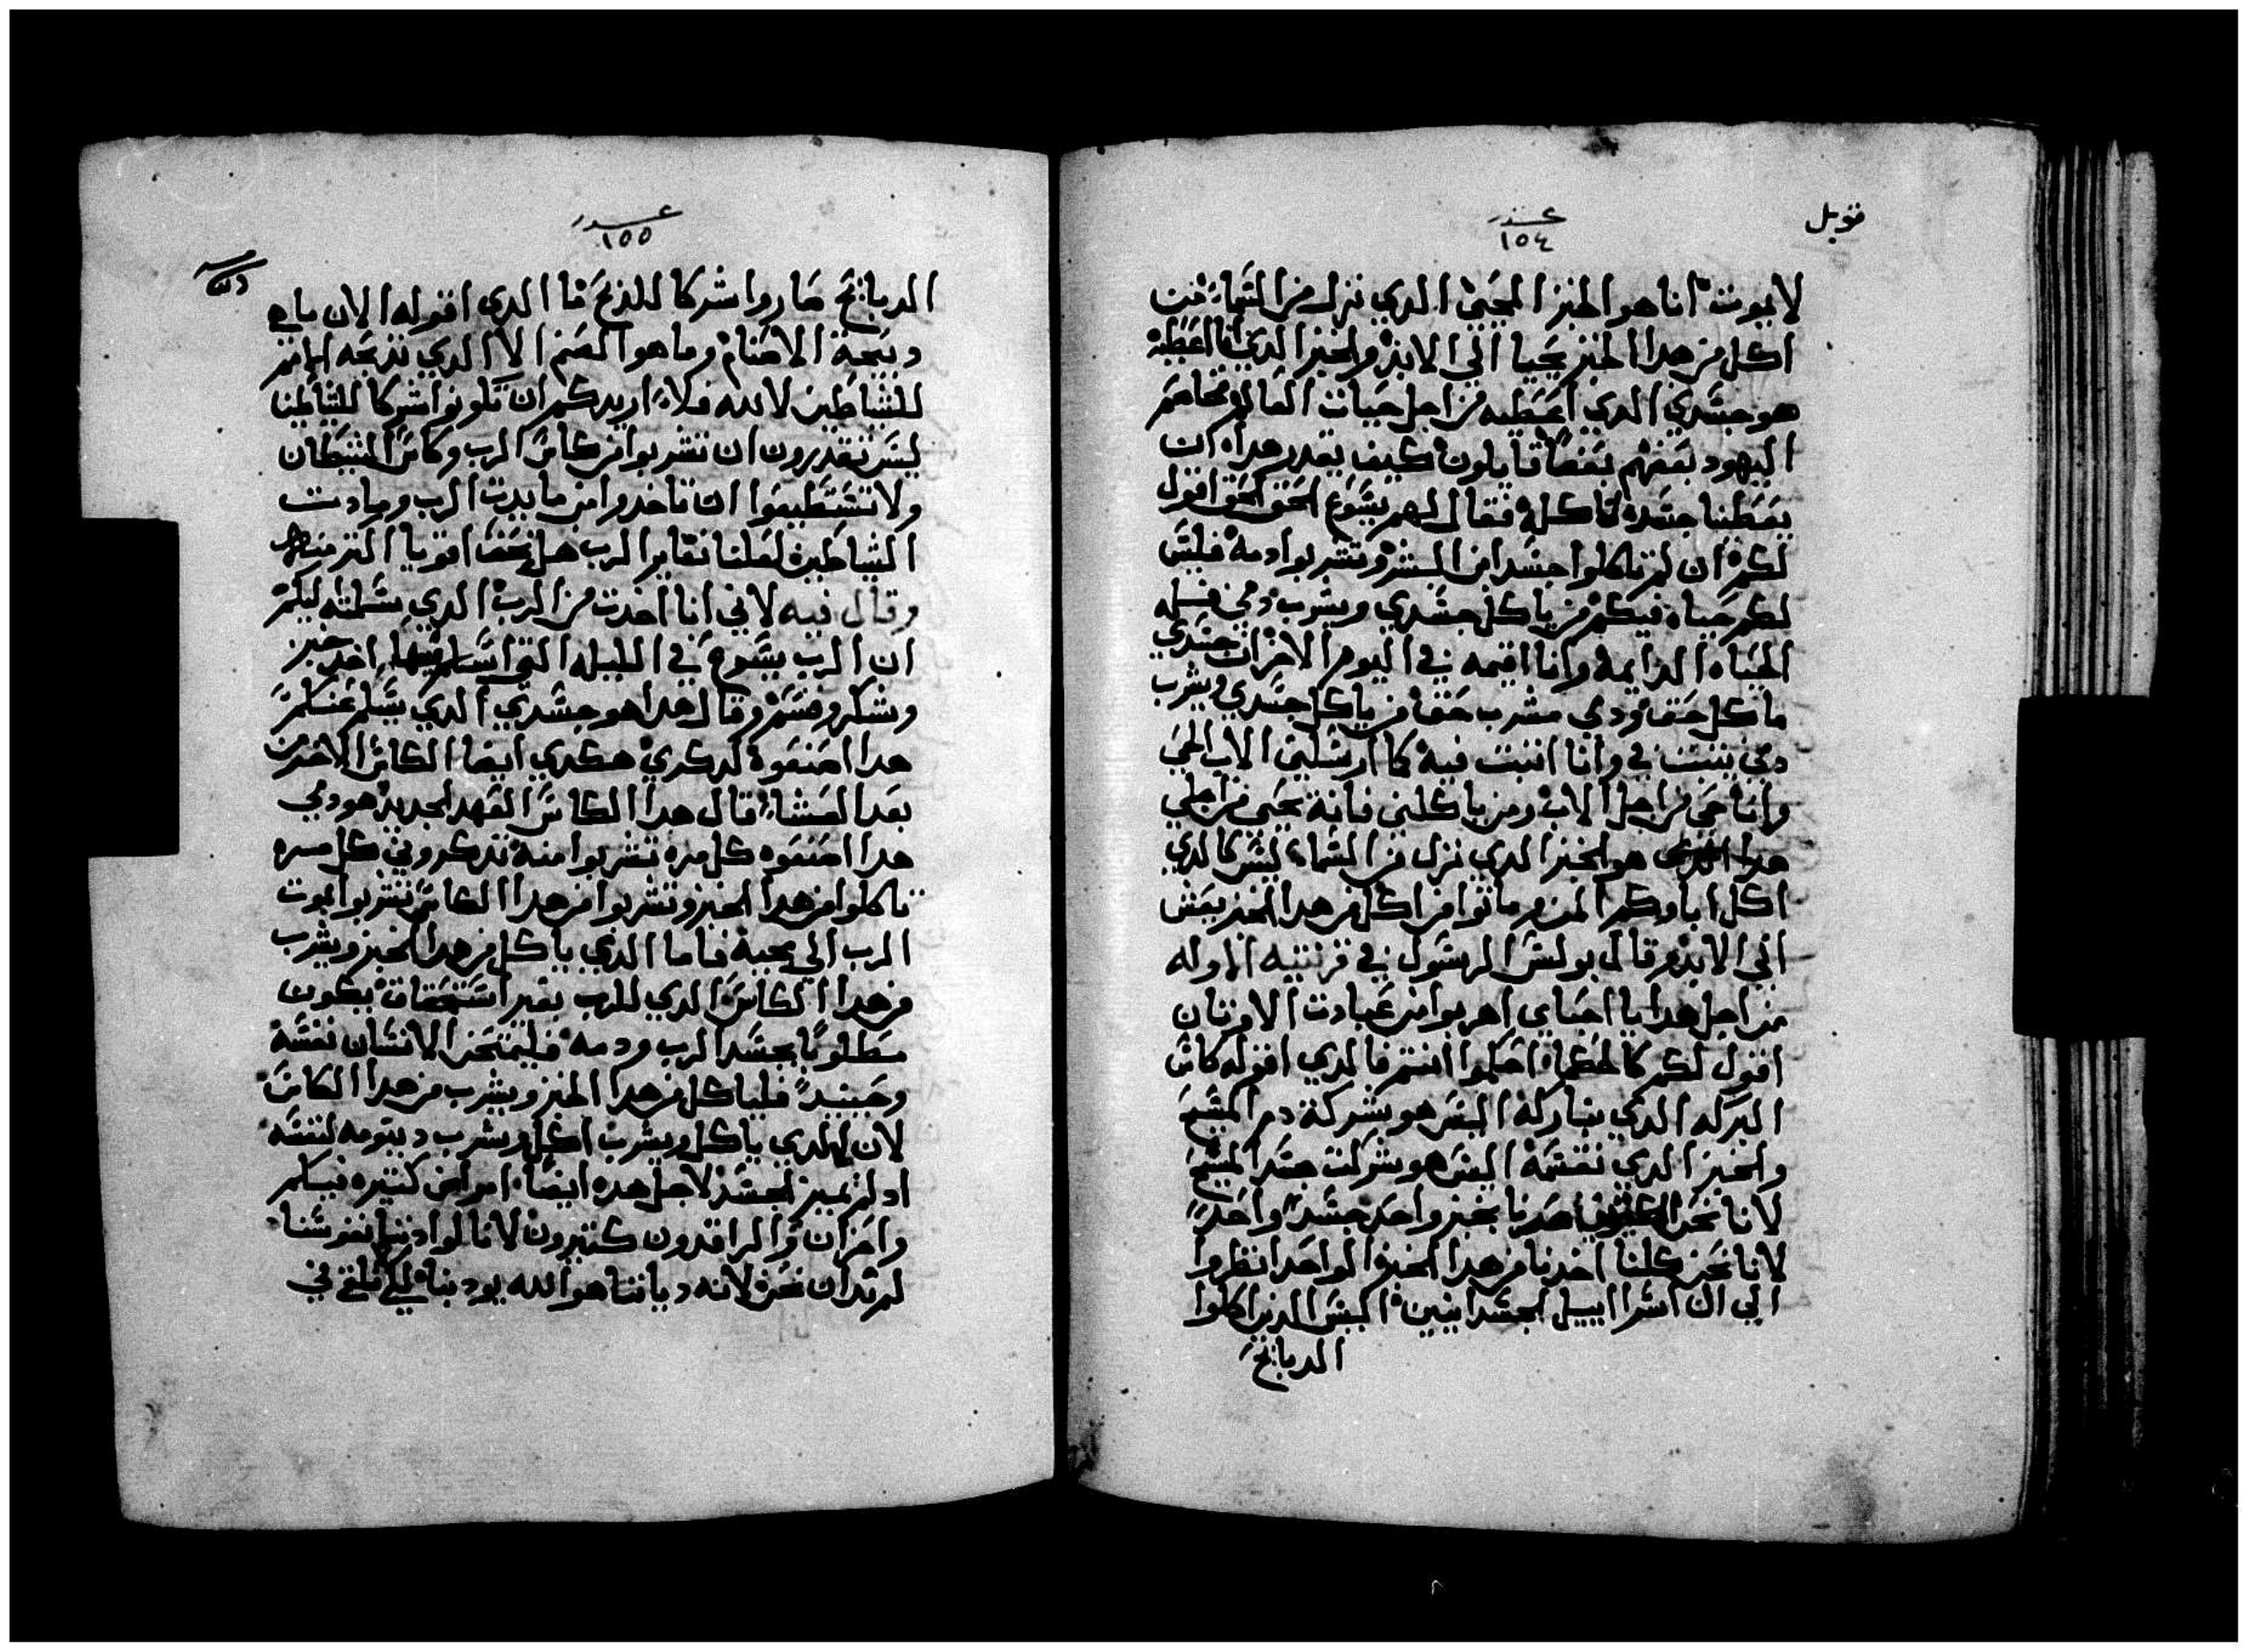 قوبل
عدد
١٥٤
لا يموت انا هو الخبز المحيي الدي نزل من السما، فمن
اكل من هدا الخبز يحيا الي الابد والخبز الدي انا اعطيه
هو جسدي الدي اعطيه من اجل حيات العالم فخاصم
اليهود بعضهم بعضًا قايلون كيف يقدر هداه ان
يعطينا جسده لناكله فقال لهم يسوع الحق الحق اقول
لكم ان لم تاكلوا جسد ابن البشر وتشربوا دمه فليس
لكم حياه فيكم من ياكل جسدي ويشرب دمي فله
الحياه الدايمه وانا اقيمه في اليوم الاخر ان جسدي
ماكل حق ودمي مشرب حق من ياكل جسدي ويشرب
دمي يثبت في وانا اثبت فيه كما ارسلني الاب الحي
وانا حي من اجل الاب ومن ياكلني فانه يحيى من اجلي
هدا هو الخبز الدي نزل من السماء ليس كالدي
اكل اباوكم المن وماتوا من اكل من هدا الخبز يعيش
الي الابد وقال بولس الرسول في قرنتيه الاوله
من اجل هدا يا احباي اهربوا من عبادت الاوتان
اقول لكم كالحكما، احكموا انتم فالدي اقوله كاس
البركه الدي نباركه اليس هو بشركة دم المسيح
والخبز الدي نقسمه اليس هو شركت جسد المسيح
لانا نحن صرنا بخبز واحد جسدًا واحدًا
لانا نحن كلنا اخدنا من هدا الخبز الواحد انظروا
الي ال اسراييل الجسدانيين اليس الدين اكلوا
الدبايح
عدد
١٥٥
الدبايح صاروا شركا للمدبح فما الدي اقوله الان بان
دبيحة الاصنام وما هو الصنم الا الدي تدبحه الامم
للشياطين لا لله فلا اريدكم ان تكونوا شركا للشياطين
ليس تقدرون ان تشربوا من كاس الرب وكاس الشيطان
ولا تستطيعوا ان تاخدوا من مايدت الرب ومايدت
الشياطين لعلنا نغاير الرب هل نحن اقويا اكتر منه
وقال فيه لاني انا اخدت من الرب الدي سلمته ليكم
ان الرب يسوع في الليله التي اسلم فيها اخد خبز
وشكر وقسم وقال هدا هو جسدي الدي يسلم عنكم
هدا اصنعوه لدكري هكدي ايضا الكاس الاخر من
بعد العشاء قال هدا الكاس العهد الجديد هو دمي
هدا اصنعوه كل مره تشربوا منه تدكروني كل مره
تاكلوا من هدا الخبز وتشربوا من هدا الكاس تبشربوا بموت
الرب الي مجيه فاما الذي ياكل من هدا الخبز ويشرب
من هدا الكاس الدي للرب بغير استحقاق يكون
مطلوبًا بجسد الرب ودمه فليمتحن الانسان نفسه
وحينيدً فلياكل من هدا الخبز ويشرب من هدا الكاس
لان الدي ياكل ويشرب اكل وشرب دينونه لنفسه
اد لم يميز الجسد لاجل هده ايضا امراض كتيره فيكم
وامران والراقدون كتيرون لانا لو ادنا نفوسنا
لم ندان نحن لانه دياننا هو الله يودبنا ليلا نلقي في